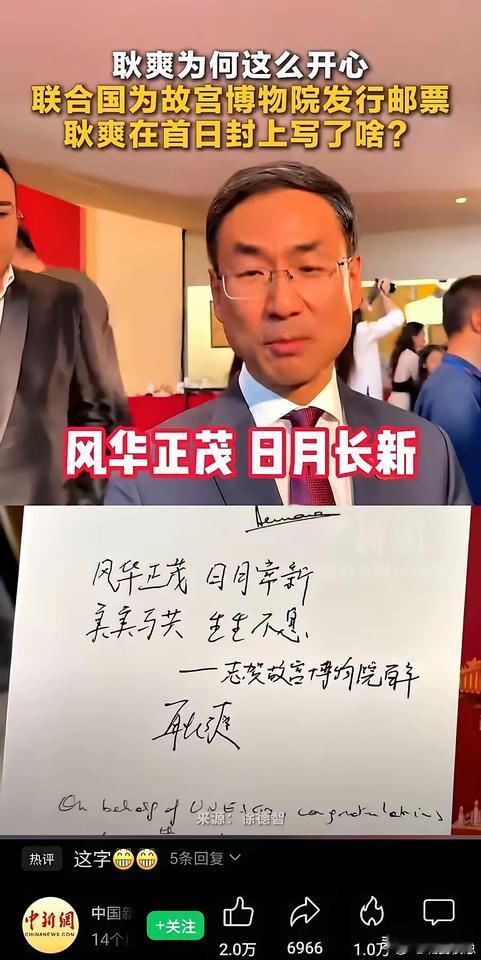 耿爽为何这么开心
联合国为故宫博物院发行邮票
耿爽在首日封上写了啥？
风华正茂 日月长新
风华正茂 日月常新
美美与共 生生不息
——志贺故宫博物院百年
耿爽
On behalf of UNESCO congratulations
来源：徐德智
热评 这字😁😁 5条回复
中新網
CHINANEWS.COM
中国新
14个
+关注
2.0万
6966
1.0万